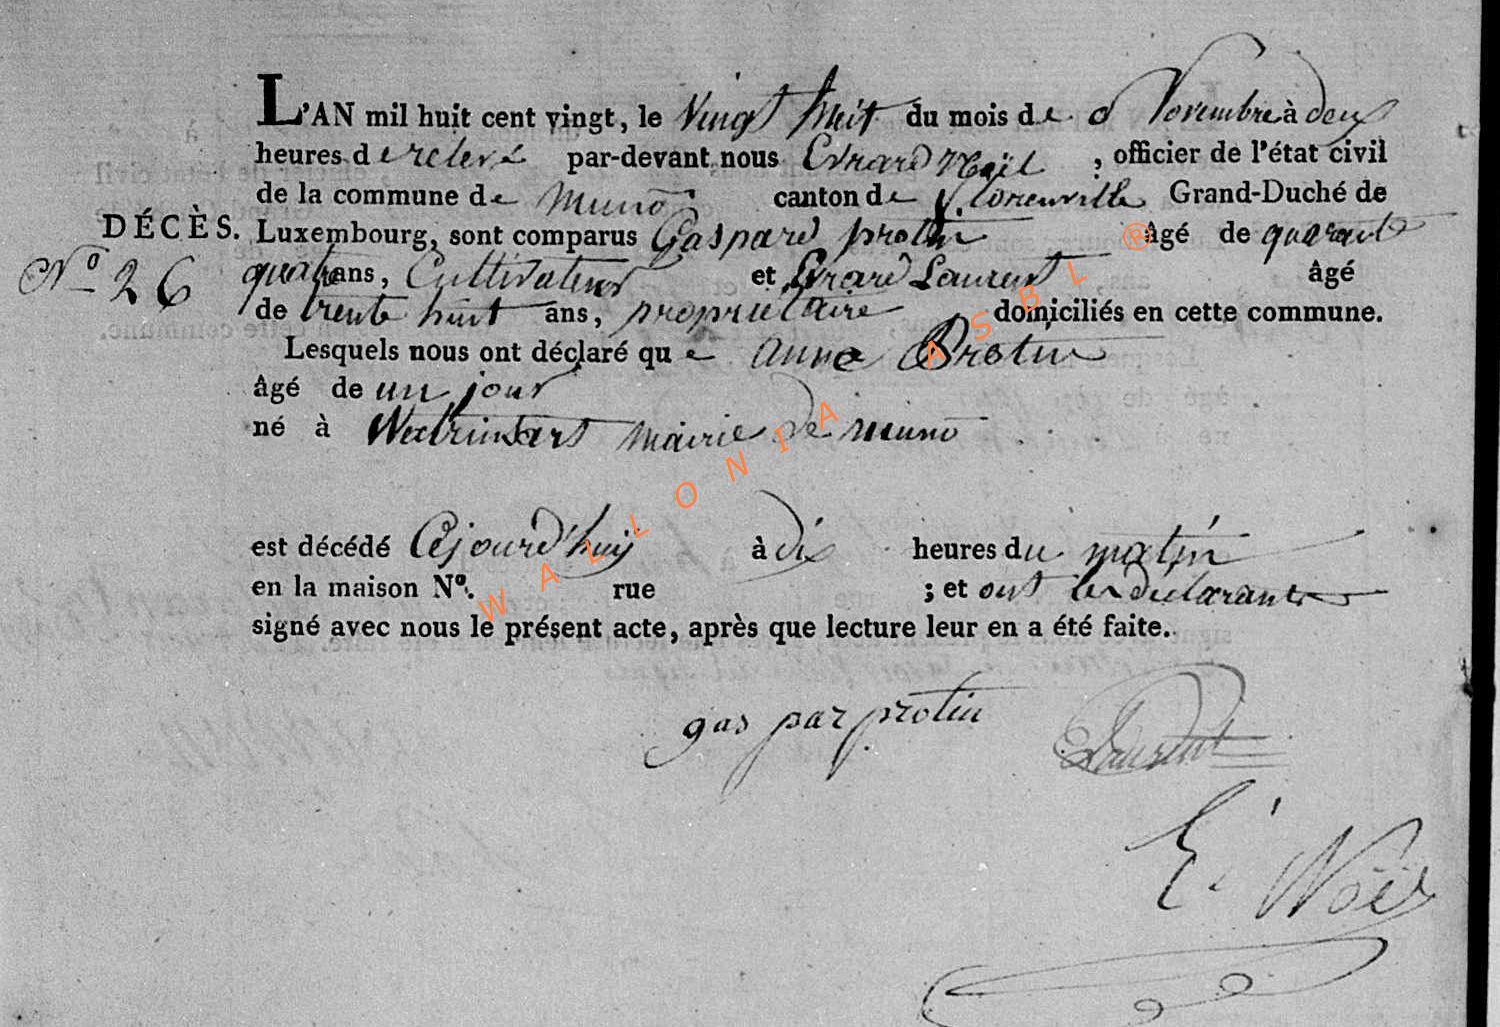 L'AN mil huit cent vingt, le vingt huit du mois de Novembre à deux
heures de relevé par-devant nous Evrard Noël, officier de l'état civil
de la commune de Muno canton de florenville Grand-Duché de
DÉCÈS. Luxembourg, sont comparus Gaspard protin âgé de quarante
N° 26 quatre ans, Cultivateur et Evrard Laurent âgé
de trente huit ans, propriétaire domiciliés en cette commune.
Lesquels nous ont déclaré que anne Protin
âgé de un jour
né à mairie de muno
est décédé Cejourd'huy à dix heures du matin
en la maison N°. rue ; et ont les déclarants
signé avec nous le présent acte, après que lecture leur en a été faite.
gaspar protin Laurent
E. Noël
WALLONIA ASBL ®